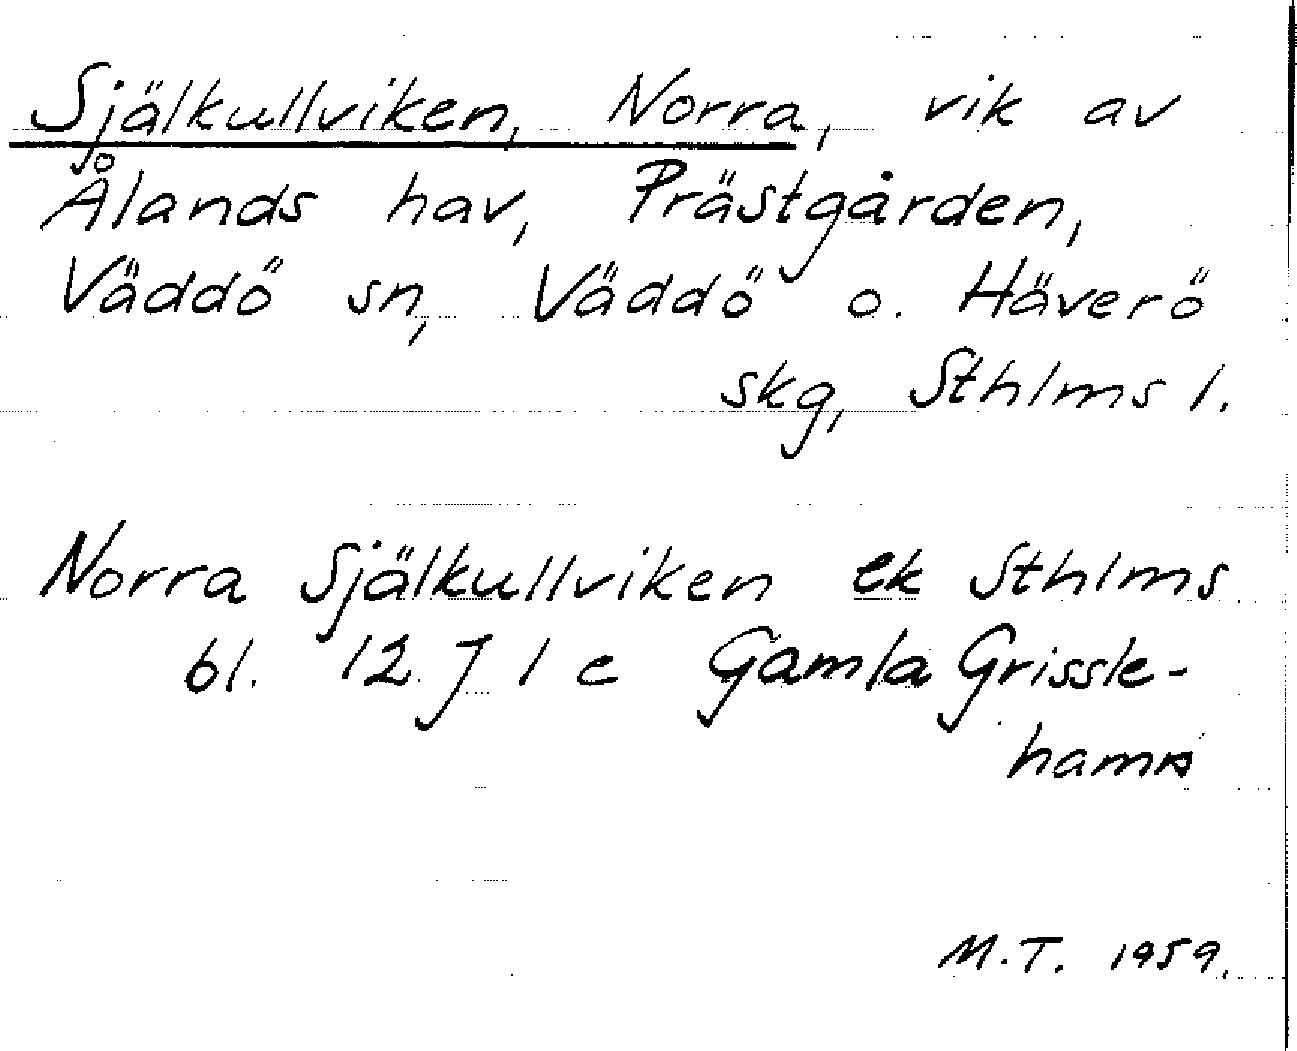 Själkullviken, Norra, vik av
Ålands hav, Prästgården,
Väddö sn, Väddö o. Häverö
skg, Sthlms l.
Norra Själkullviken ek Sthlms
bl. 12 J 1 e Gamla Grissle-
hamn
M.T. 1959.